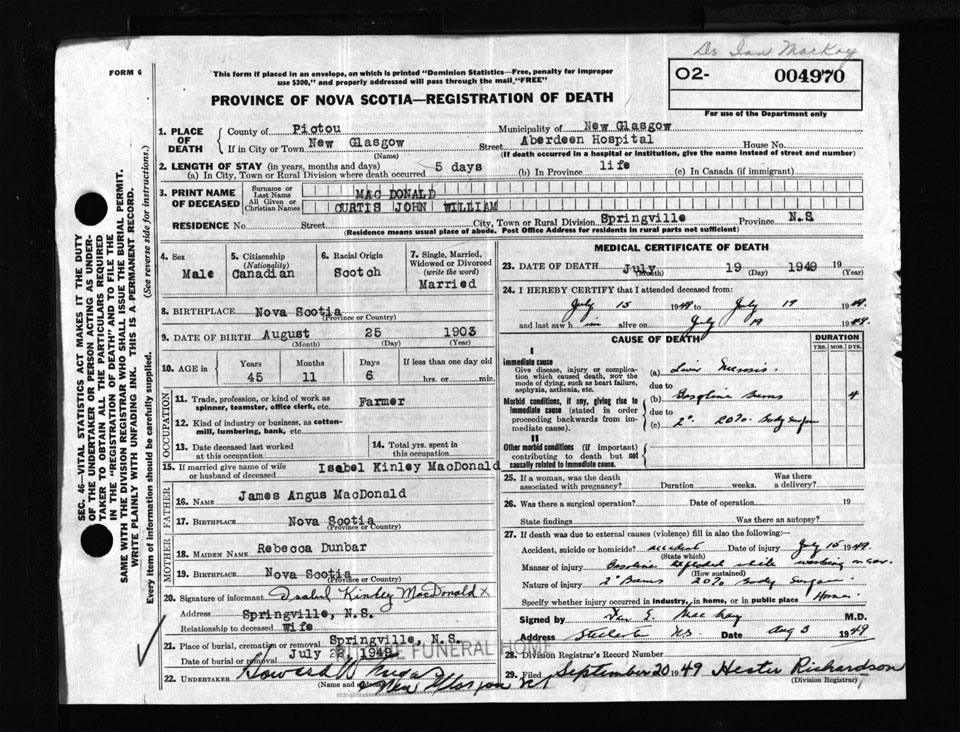 Dr Ian MacKay
FORM 6
This form if placed in an envelope, on which is printed "Dominion Statistics—Free, penalty for improper
use $300," and properly addressed will pass through the mail, "FREE"
O2- 004970
For use of the Department only
PROVINCE OF NOVA SCOTIA—REGISTRATION OF DEATH
SEC. 46—VITAL STATISTICS ACT MAKES IT THE DUTY
OF THE UNDERTAKER OR PERSON ACTING AS UNDER-
TAKER TO OBTAIN ALL THE PARTICULARS REQUIRED
IN THE "REGISTRATION OF DEATH" AND TO FILE THE
SAME WITH THE DIVISION REGISTRAR WHO SHALL ISSUE THE BURIAL PERMIT.
WRITE PLAINLY WITH UNFADING INK. THIS IS A PERMANENT RECORD.
Every item of information should be carefully supplied. (See reverse side for instructions.)
1. PLACE OF DEATH County of Pictou Municipality of New Glasgow
If in City or Town New Glasgow (Name) Street Aberdeen Hospital House No.
(If death occurred in a hospital or institution, give the name instead of street and number)
2. LENGTH OF STAY (in years, months and days)
(a) In City, Town or Rural Division where death occurred 5 days (b) In Province life (c) In Canada (if immigrant)
3. PRINT NAME OF DECEASED Surname or Last Name MAC DONALD
All Given or Christian Names CURTIS JOHN WILLIAM
RESIDENCE No. Street City, Town or Rural Division Springville Province N.S
(Residence means usual place of abode. Post Office Address for residents in rural parts not sufficient)
4. Sex Male
5. Citizenship (Nationality) Canadian
6. Racial Origin Scotch
7. Single, Married, Widowed or Divorced (write the word) Married
8. BIRTHPLACE Nova Scotia
(Province or Country)
9. DATE OF BIRTH August 25 1903
(Month) (Day) (Year)
10. AGE in Years Months Days If less than one day old
45 11 6 hrs. or min.
OCCUPATION
11. Trade, profession, or kind of work as
spinner, teamster, office clerk, etc. Farmer
12. Kind of industry or business, as cotton-
mill, lumbering, bank, etc.
13. Date deceased last worked
at this occupation
14. Total yrs. spent in
this occupation
15. If married give name of wife
or husband of deceased Isabel Kinley MacDonald
FATHER
16. NAME James Angus MacDonald
17. BIRTHPLACE Nova Scotia
(Province or Country)
MOTHER
18. MAIDEN NAME Rebecca Dunbar
19. BIRTHPLACE Nova Scotia
(Province or Country)
20. Signature of informant Isabel Kinley MacDonald x
Address Springville, N.S.
Relationship to deceased wife
21. Place of burial, cremation or removal Springville, N.S.
Date of burial or removal July 1949
FUNERAL HOME
22. UNDERTAKER Howard W
(Name and address) New Glasgow NS
MEDICAL CERTIFICATE OF DEATH
23. DATE OF DEATH July 19 1949 19
(Month) (Day) (Year)
24. I HEREBY CERTIFY that I attended deceased from:
July 15 1949 to July 19 1949.
and last saw h im alive on July 19 1949.
CAUSE OF DEATH DURATION
YRS. MOS. DYS.
I
Immediate cause
Give disease, injury or complica-
tion which caused death, NOT the
mode of dying, such as heart failure,
asphyxia, asthenia, etc.
(a) Liver Necrosis
due to
Morbid conditions, if any, giving rise to
immediate cause (stated in order
proceeding backwards from im-
mediate cause).
(b) Gasoline Burns 4
due to
(c) 2° 20% Body Surface
II
Other morbid conditions (if important)
contributing to death but not
causally related to immediate cause.
25. If a woman, was the death
associated with pregnancy? Duration weeks. Was there
a delivery?
26. Was there a surgical operation? Date of operation 19
State findings Was there an autopsy?
27. If death was due to external causes (violence) fill in also the following:—
Accident, suicide or homicide? accident Date of injury July 15 1949.
(State which)
Manner of injury Gasoline exploded while working on car.
(How sustained)
Nature of injury 2° Burns 20% Body Surface
Specify whether injury occurred in industry, in home, or in public place Home
Signed by Ian E. MacKay M.D.
Address Stellarton NS. Date Aug 3 1949
28. Division Registrar's Record Number
29. Filed September 20 1949 Hester Richardson
(Division Registrar)